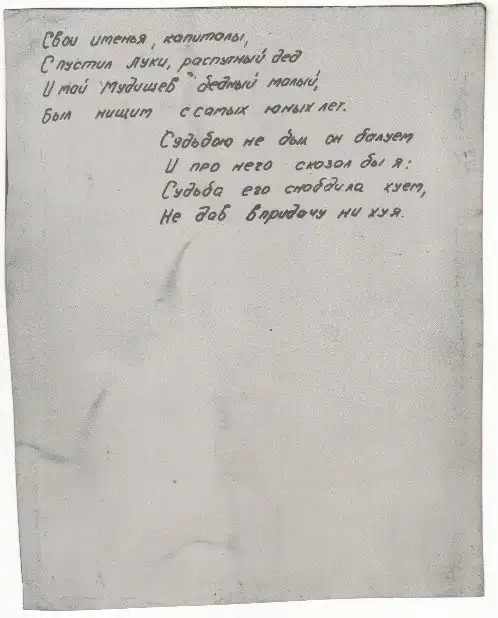 Свои именья, капиталы,
Спустил Луки, распутный дед
И мой Мудищев бедный малый,
Был нищим с самых юных лет.
Судьбою не был он балуем
И про него сказал бы я:
Судьба его снабдила хуем,
Не дав впридачу ни хуя.